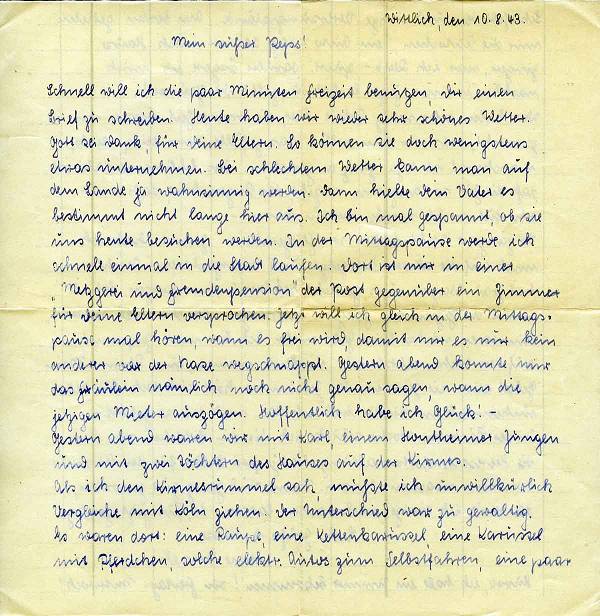 Wittlich, den 10.8.43.
Mein süßer Peps!
Schnell will ich die paar Minuten Freizeit benützen, Dir einen
Brief zu schreiben. Heute haben wir wieder sehr schönes Wetter.
Gott sei Dank, für Deine Eltern. So können sie doch wenigstens
etwas unternehmen. Bei schlechtem Wetter kann man auf
dem Lande ja wahnsinnig werden. Dann hielte Dein Vater es
bestimmt nicht lange hier aus. Ich bin mal gespannt, ob sie
uns heute besuchen werden. In der Mittagspause werde ich
schnell einmal in die Stadt laufen. Dort ist mir in einer
„Metzgerei und Fremdenpension" der Post gegenüber ein Zimmer
für Deine Eltern versprochen. Jetzt will ich gleich in der Mittags-
pause mal hören, wann es frei wird, damit mir es nur kein
anderer vor der Nase wegschnappt. Gestern abend konnte mir
das Fräulein nämlich noch nicht genau sagen, wann die
jetzigen Mieter auszögen. Hoffentlich habe ich Glück! -
Gestern abend waren wir mit Karl, einem Hontheimer Jungen
und mit zwei Töchtern des Hauses auf der Kirmes.
Als ich den Kirmesrummel sah, mußte ich unwillkürlich
Vergleiche mit Köln ziehen. Der Unterschied war zu gewaltig.
Es waren dort: eine Raupe, eine Kettenkarussel, eine Karussel
mit Pferdchen, solche elektr. Autos zum Selbstfahren, eine paar